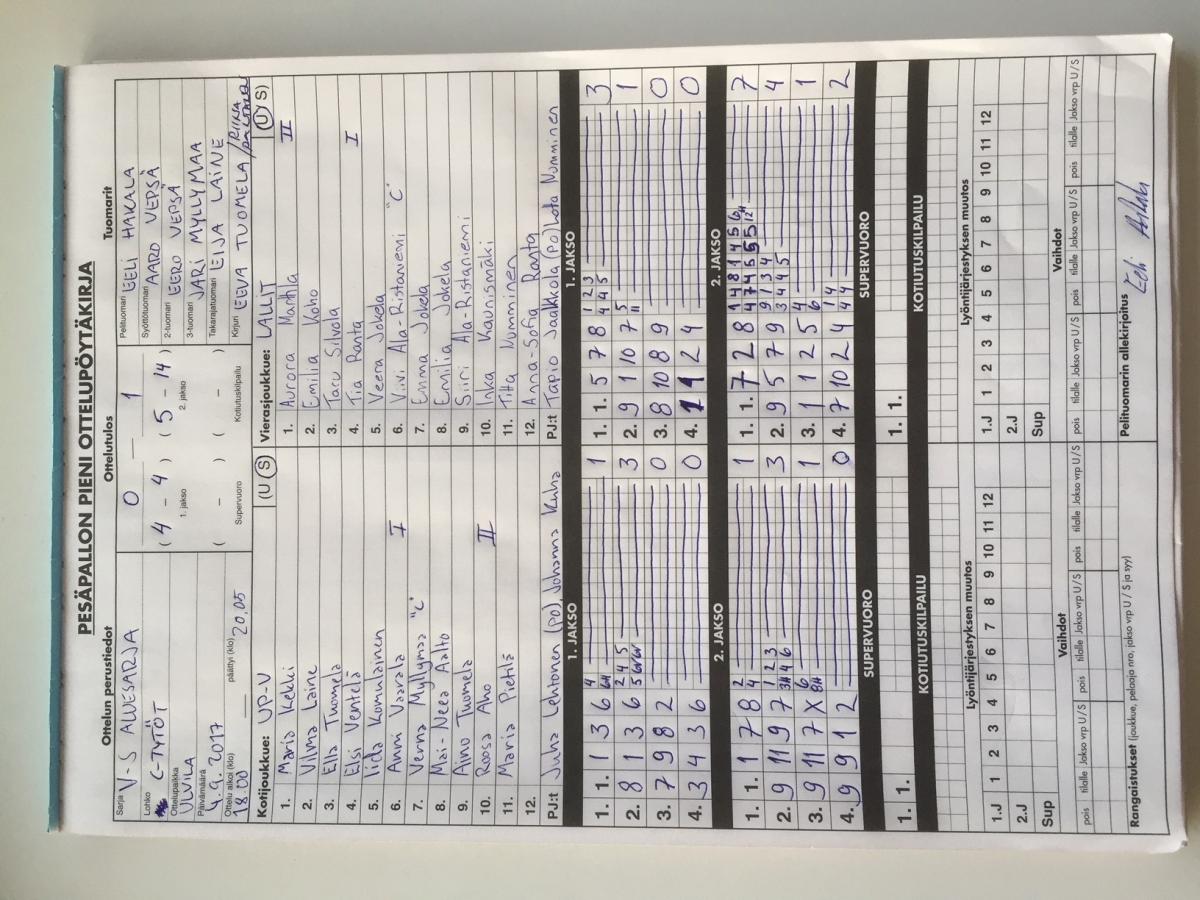 PESÄPALLON PIENI OTTELUPÖYTÄKIRJA
Ottelun perustiedot
Sarja V-S ALUESARJA
Lohko C-TYTÖT
Ottelupaikka ULVILA
Päivämäärä 4.9.2017
Ottelu alkoi (klo) 18:00 päättyi (klo) 20.05
Ottelutulos
0 1
( 4 - 4 ) ( 5 - 14 )
1. jakso 2. jakso
( - ) ( - )
Supervuoro Kotiutuskilpailu
Tuomarit
Pelituomari EELI HAKALA
Syöttötuomari AARO VEPSÄ
2-tuomari EERO VEPSÄ
3-tuomari JARI MYLLYMAA
Takarajatuomari EIJA LAINE
Kirjuri EEVA TUOMELA /RIINA
Kotijoukkue: UP-V (U S)
1. Maria Kekki
2. Vilma Laine
3. Ella Tuomela
4. Elsi Ventelä
5. Iida Komulainen
6. Anni Vaarala I
7. Verna Myllymaa "C"
8. Mai-Neea Aalto
9. Aino Tuomela
10. Roosa Aho II
11. Maria Pietilä
12.
PJ:t Juha Lehtonen (po), Johanna Kuha
Vierasjoukkue: LALLIT (U S)
1. Aurora Mattila II
2. Emilia Koho
3. Taru Silvola
4. Tia Ranta I
5. Veera Jokela
6. Viivi Ala-Ristaniemi "C"
7. Emma Jokela
8. Emilia Jokela
9. Siiri Ala-Ristaniemi
10. Inka Kaunismäki
11. Titta Numminen
12. Anna-Sofia Ranta
PJ:t Tapio Jaakkola (po) Lotta Numminen
1. JAKSO
1. 1. 1 3 6 4 6H 1
2. 8 1 3 6 2 4 5 3
3. 7 9 8 2 0
4. 3 4 3 6 0
1. JAKSO
1. 1. 5 7 8 1 2 3 4 4 5 3
2. 9 1 10 7 5 11 1
3. 8 10 8 9 0
4. 1 1 2 4 0
2. JAKSO
1. 1. 1 7 8 2 4 1
2. 9 11 9 7 1 2 3 3H 4 6 3
3. 9 11 7 X 6 8H 1
4. 9 9 1 2 0
2. JAKSO
1. 1. 7 2 8 1 4 8 1 4 5 6 4 7 4 5 5 5 12H 7
2. 9 5 7 9 9 1 3 4 3 4 4 5 4
3. 1 1 2 5 4 6 1
4. 7 10 2 4 1 4 4 4 2
SUPERVUORO
1. 1.
SUPERVUORO
1. 1.
KOTIUTUSKILPAILU
KOTIUTUSKILPAILU
Lyöntijärjestyksen muutos
1.J 1 2 3 4 5 6 7 8 9 10 11 12
2.J
Sup
Lyöntijärjestyksen muutos
1.J 1 2 3 4 5 6 7 8 9 10 11 12
2.J
Sup
Vaihdot
pois tilalle Jakso vrp U/S pois tilalle Jakso vrp U/S pois tilalle Jakso vrp U/S
Vaihdot
pois tilalle Jakso vrp U/S pois tilalle Jakso vrp U/S pois tilalle Jakso vrp U/S
Rangaistukset (joukkue, pelaaja nro, jakso vrp U / S ja syy)
Pelituomarin allekirjoitus
Eeli Hakala